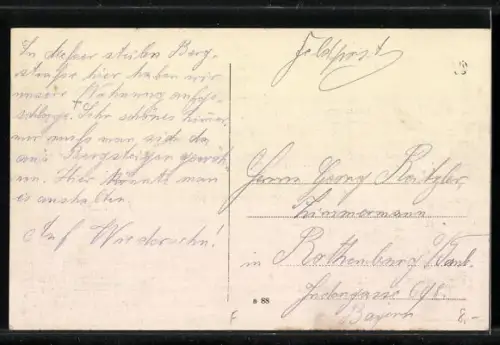 In dieser steilen Berg-
straße hier haben wir
unsere Wohnung aufge-
schlagen. Sehr schönes Zimmer,
nur muß man sich da
ans Bergsteigen gewöh-
nen. Hier könnte man
es aushalten.
Auf Wiedersehn!
Feldpost
Herrn Georg
Zimmermann
in Rothenburg o/Taub.
Judengasse
Bayern
s 88
8.-